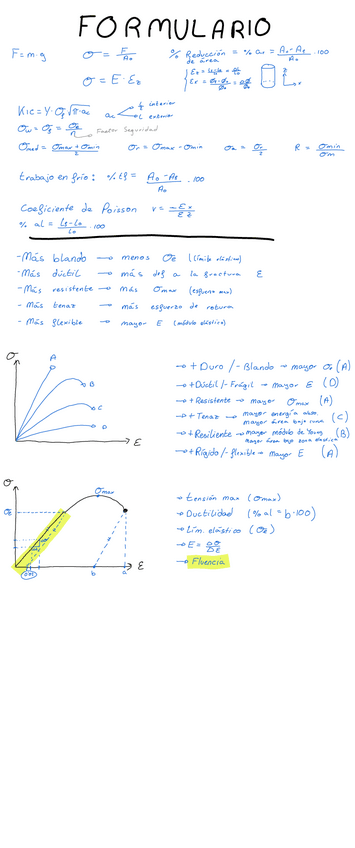 FORMULARIO
F = m·g    σ = F/A₀    % Reducción de área = % aᵣ = (A₀ - Af)/A₀ · 100
σ = E·Ez
KIc = Y·σf √(π·ac)    ac    interior    L exterior
σw = σf =    Factor Seguridad
σmed = (σmax + σmin)/2    σr = σmax - σmin    σa = σr/2    R = σmin/σm
trabajo en frío: % tf = (A₀ - Af)/A₀ · 100
Coeficiente de Poisson    ν = -Ex/Ez
% al = (Lf - L₀)/L₀ · 100
-Más blando → menos σE (límite elástico)
-Más dúctil → más def a la fractura ε
-Más resistente → más σmax (esfuerzo max)
-Más tenaz → más esfuerzo de rotura
-Más flexible → mayor E (módulo elástico)
σ
A
B
C
D
E
→ + Duro / - Blando → mayor (A)
→ + Dúctil / - Frágil → mayor E (D)
→ + Resistente → mayor σmax (A)
→ + Tenaz → mayor energía abs. mayor área bajo curva (C)
→ + Resiliente → mayor módulo de Young mayor área bajo zona elástica (B)
→ + Rígido / - flexible → mayor E (A)
σ
σmax
σE
b
a
E
→ tensión max (σmax)
→ Ductilidad (% al = b·100)
→ Lím. elástico (σE)
→ E = Δσ/ΔE
→ Fluencia